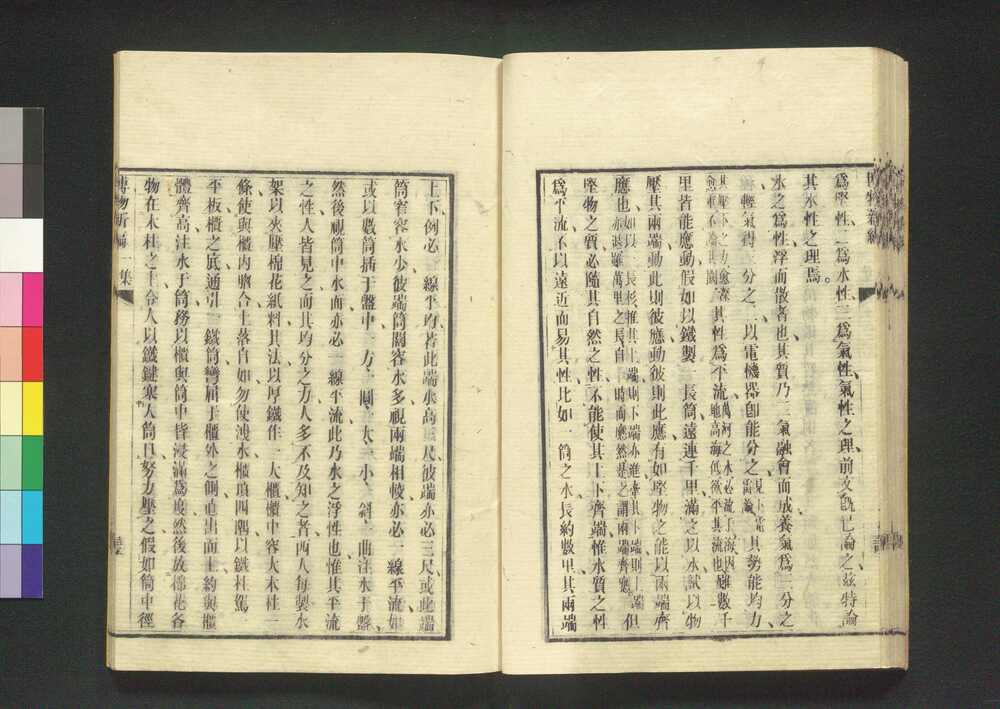 爲堅性二爲水性三爲氣性氣性之理前文旣已論之茲特論
其水性之理焉。
水之爲性浮而散者也其質乃二氣融會而成養氣爲三分之
輕氣爲二分之一以電機器卽能分之其勢能均力
其性爲平流
里皆能應動假如以鐵製一長筒遠連千里滿之以水試以物
壓其兩端動此則彼應動彼則此應有如堅物之能以兩端齊
應也
堅物之質必隨其自然之性不能使其上下齊端惟水質之性
爲平流不以遠近而易其性比如一筒之水長約數里其兩端
上下例必一線平均若此端水高三尺彼端亦必三尺或此端
筒窄容水少彼端筒闊容水多視兩端相較亦必一線平流如
或以數筒插于盤中一方一圓一大一小一斜一曲注水于盤
然後視筒中水面亦必一線平流此乃水之浮性也惟其平流
之性人皆見之而其均分之力人多不及知之者西人每製水
架以夾壓棉花紙料其法以厚鐵作一大櫃櫃中容大木柱一
條使與櫃內脗合上落自如勿使洩水櫃頂四隅以鐵柱駕一
平板櫃之底通引一鐵筒彎屈于櫃外之側直出而上約與櫃
體齊高注水于筒務以櫃與筒中皆浸滿爲度然後放棉花各
物在木柱之上令人以鐵鍵塞入筒口努力壓之假如筒中徑
博物新編一集